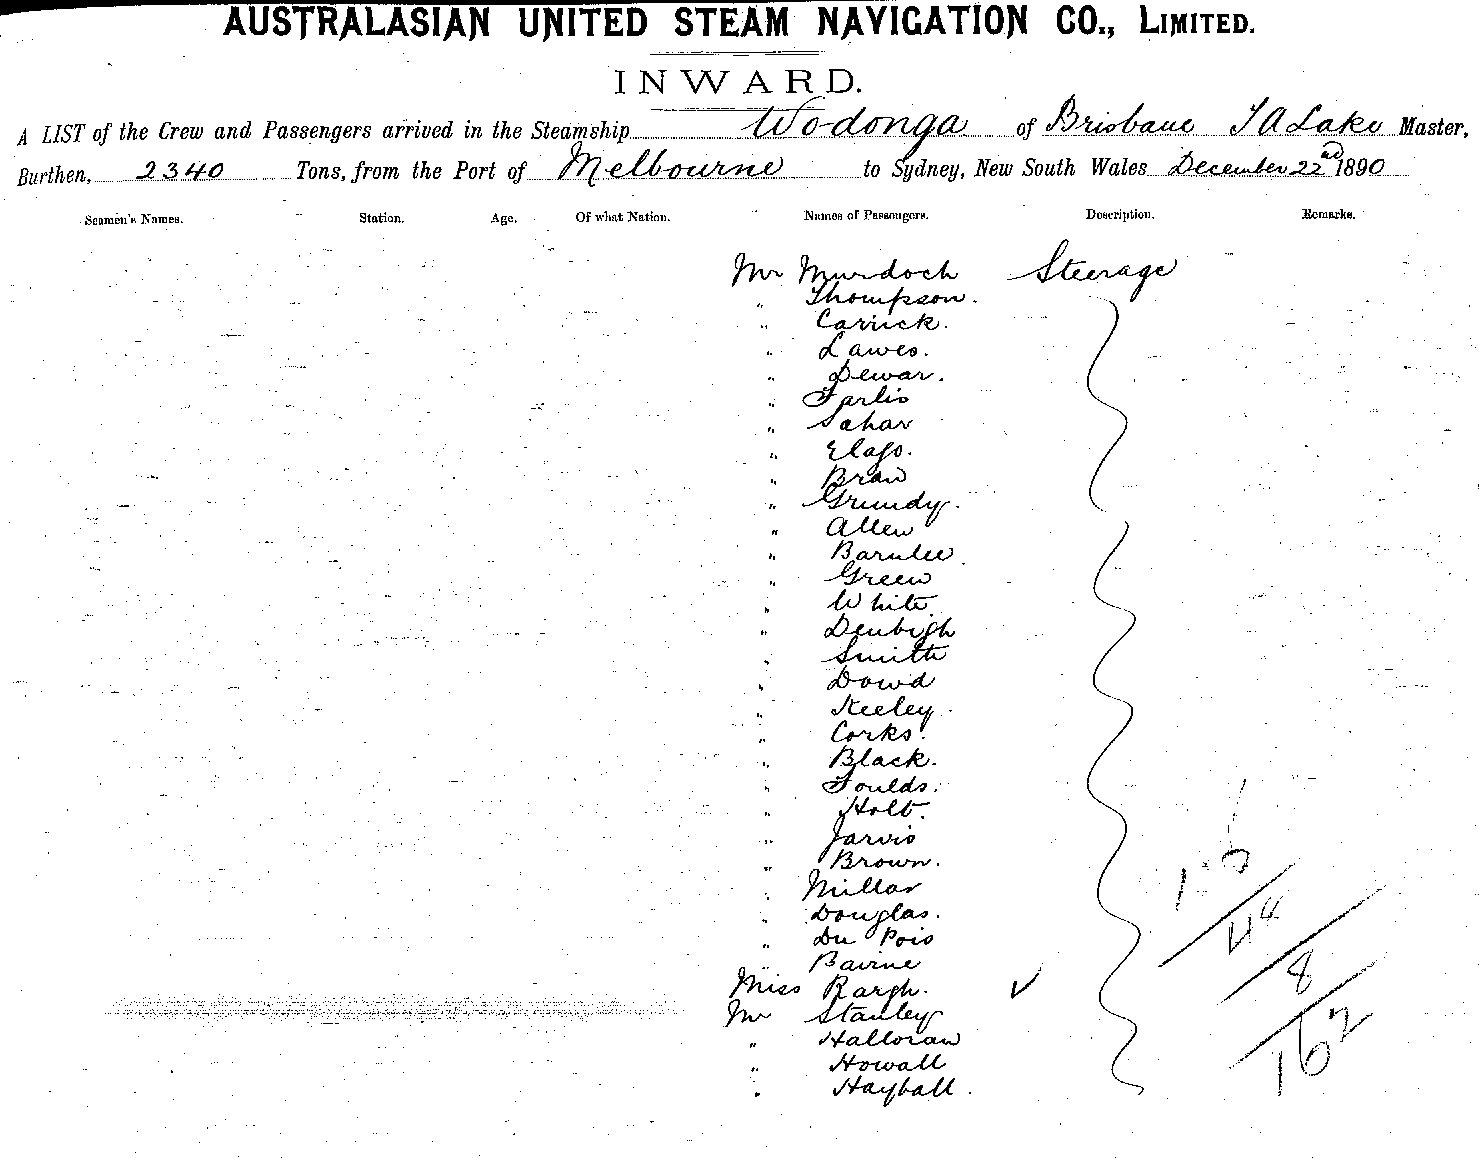 AUSTRALASIAN UNITED STEAM NAVIGATION CO., LIMITED.
INWARD.
A LIST of the Crew and Passengers arrived in the Steamship Wodonga of Brisbane T A Lake Master,
Burthen, 2340 Tons, from the Port of Melbourne to Sydney, New South Wales December 22nd 1890
Seamen's Names. Station. Age. Of what Nation. Names of Passengers. Description. Remarks.
Mr Murdoch Steerage
" Thompson.
" Carrick.
" Lawes.
" Dewar.
"
"
"
"
" Grundy.
" Allen
" Barnlee
" Green
" White
" Denbigh
" Smith
" Dowd
" Keeley
" Corks.
" Black.
" Foulds.
" Holt.
" Jarvis
" Brown.
" Millar
" Douglas.
" Du Pois
" Bairne
Miss ✓
Mr Stanley
" Halloran
" Howall
" Hayball.
44
8
162